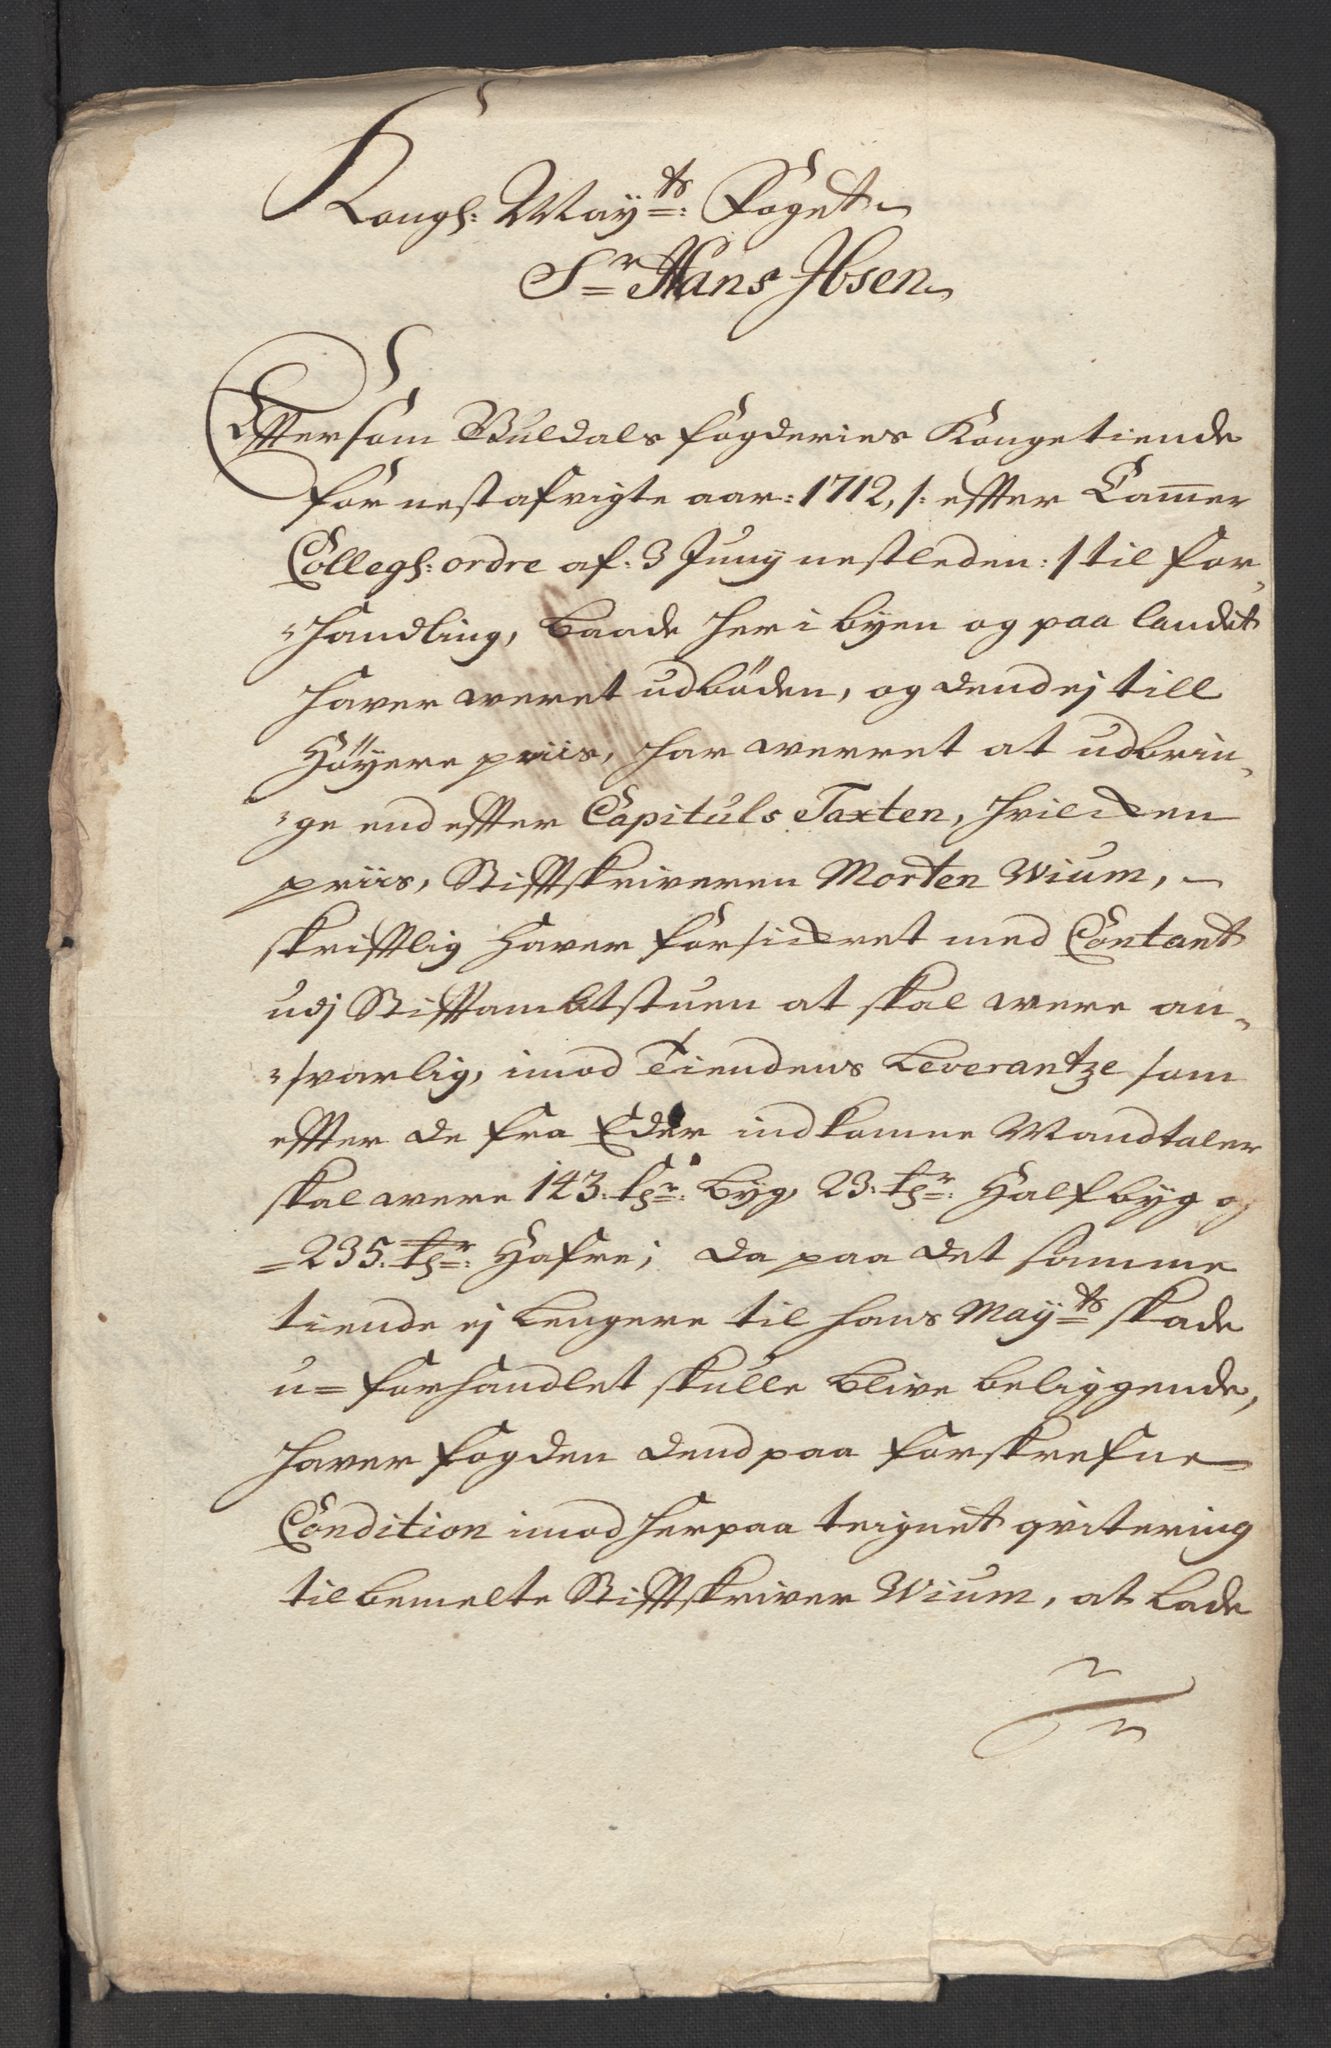 Kongl: May:ts Foget
Sr Hans Ibsen
Effter som Guldals fogderies Kongetiende
for nestafvigte aar: 1712, /: effter Cammer
Collegl: ordre af: 3 Juny nestleden: / til for,
handling, baade her i byen og paa landet
haver weret udböden, og dend ej till
Höyere priis, har werret at udbrin,
ge end effter Capituls Taxten, hvilcken
priis, Stifftskriveren Morten Wium,
skrifftlig haver forsickret med Contant
udj Stifftambtstuen at skal were an,
svarlig, imod Tiendens Leverantze som
effter de fra Eder indkomne Mandtaler
skal were 143. tdr: byg, 23. tdr: Halfbyg og
235. tdr: Hafre; da paa det samme
tiende ej Lengere til hans May:ts skade
u=forhandlet skulle blive beliggende,
haver fogden dend paa forskrefne
Condition imod herpaa teignet qvitering
til bemelte Stifftskriver Wium, at lade